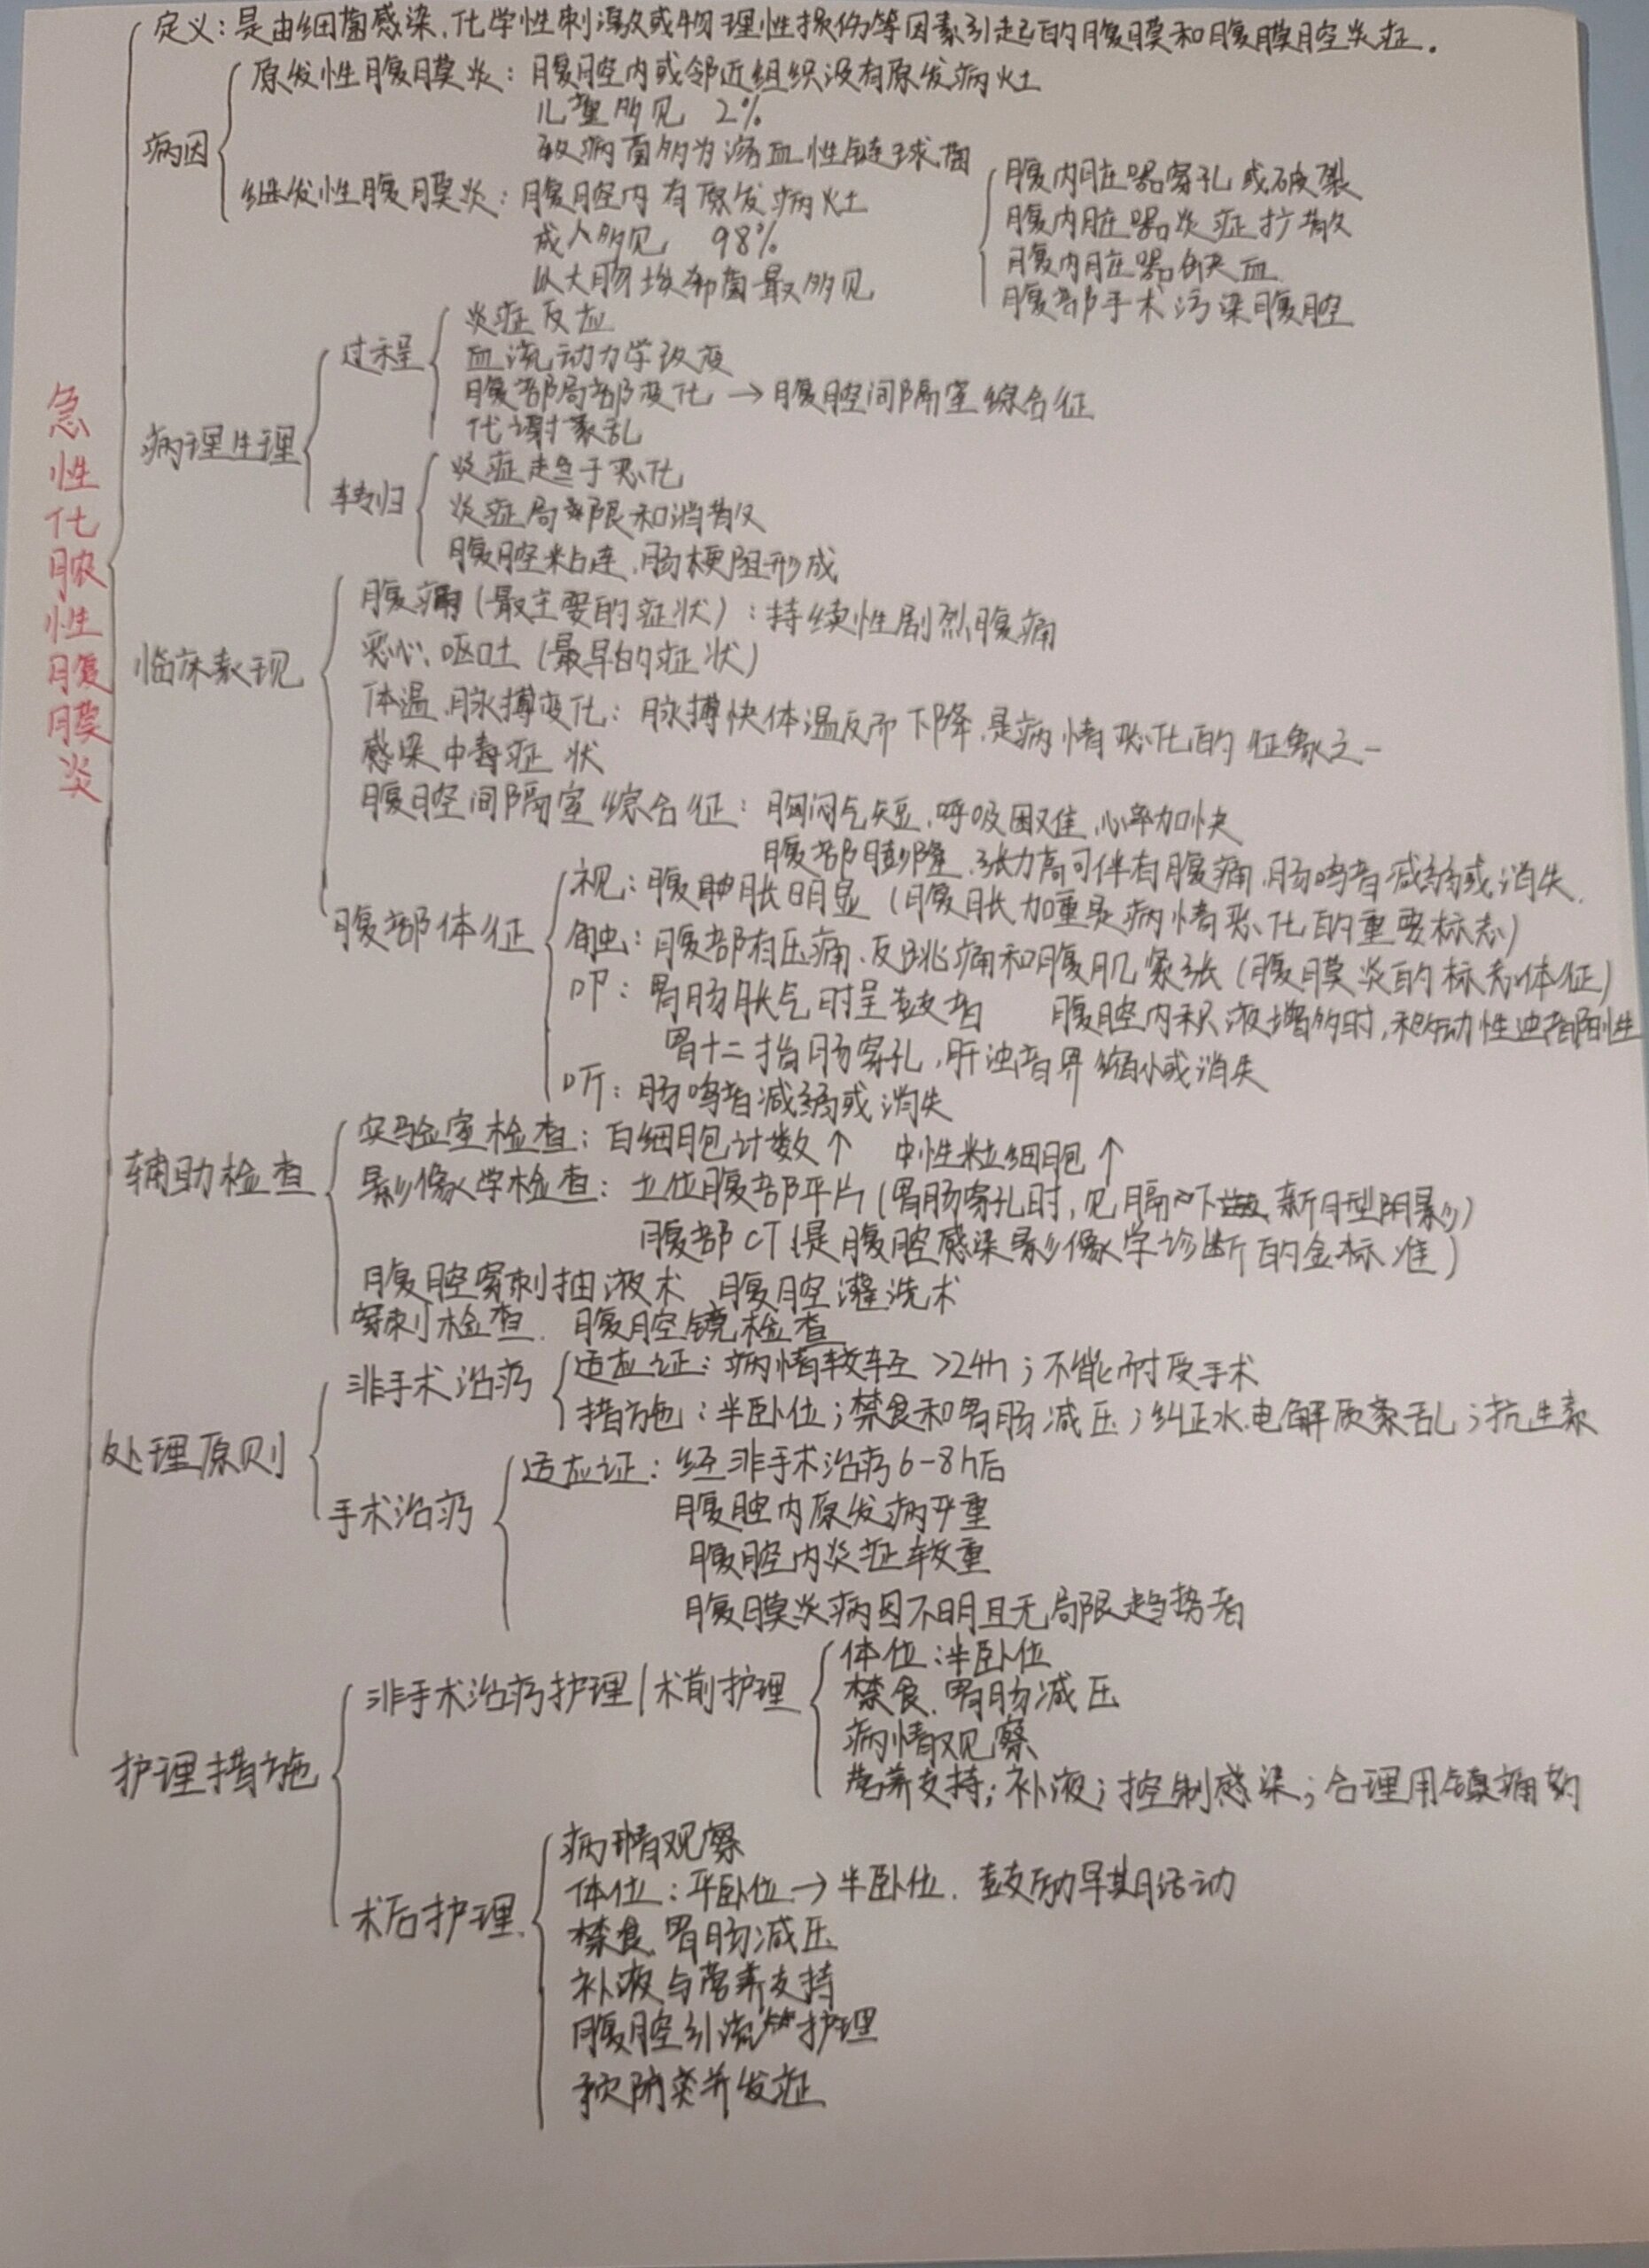 急性化脓性腹膜炎
定义：是由细菌感染、化学性刺激或物理性损伤等因素引起的腹膜和腹膜腔炎症。
病因
原发性腹膜炎：腹腔内或邻近组织没有原发病灶
儿童多见 2%
致病菌多为溶血性链球菌
继发性腹膜炎：腹腔内有原发病灶
成人多见 98%
以大肠埃希菌最多见
腹内脏器穿孔或破裂
腹内脏器炎症扩散
腹内脏器缺血
腹部手术污染腹腔
病理生理
过程
炎症反应
血流动力学改变
腹部局部变化→腹腔间隔室综合征
代谢紊乱
转归
炎症趋于恶化
炎症局限和消散
腹腔粘连、肠梗阻形成
临床表现
腹痛（最主要的症状）：持续性剧烈腹痛
恶心、呕吐（最早的症状）
体温、脉搏变化：脉搏快体温反而下降，是病情恶化的征象之一
感染中毒症状
腹腔间隔室综合征：胸闷气短、呼吸困难、心率加快
腹部膨隆、张力高可伴有腹痛、肠鸣音减弱或消失.
腹部体征
视：腹胀明显（腹胀加重是病情恶化的重要标志）
触：腹部有压痛、反跳痛和腹肌紧张（腹膜炎的标志体征）
叩：胃肠胀气时呈鼓音 腹腔内积液增多时，移动性浊音阳性
胃十二指肠穿孔，肝浊音界缩小或消失
听：肠鸣音减弱或消失
辅助检查
实验室检查：白细胞计数↑ 中性粒细胞↑
影像学检查：立位腹部平片（胃肠穿孔时，见膈下新月型阴影）
腹部CT（是腹腔感染影像学诊断的金标准）
腹腔穿刺抽液术、腹腔灌洗术
穿刺检查、腹腔镜检查
处理原则
非手术治疗
适应证：病情较轻 >24h；不能耐受手术
措施：半卧位；禁食和胃肠减压；纠正水、电解质紊乱；抗生素
手术治疗
适应证：经非手术治疗6-8h后
腹腔内原发病严重
腹腔内炎症较重
腹膜炎病因不明且无局限趋势者
护理措施
非手术治疗护理/术前护理
体位：半卧位
禁食、胃肠减压
病情观察
营养支持；补液；控制感染；合理用镇痛药
术后护理
病情观察
体位：平卧位→半卧位、鼓励早期活动
禁食、胃肠减压
补液与营养支持
腹腔引流护理
预防并发症